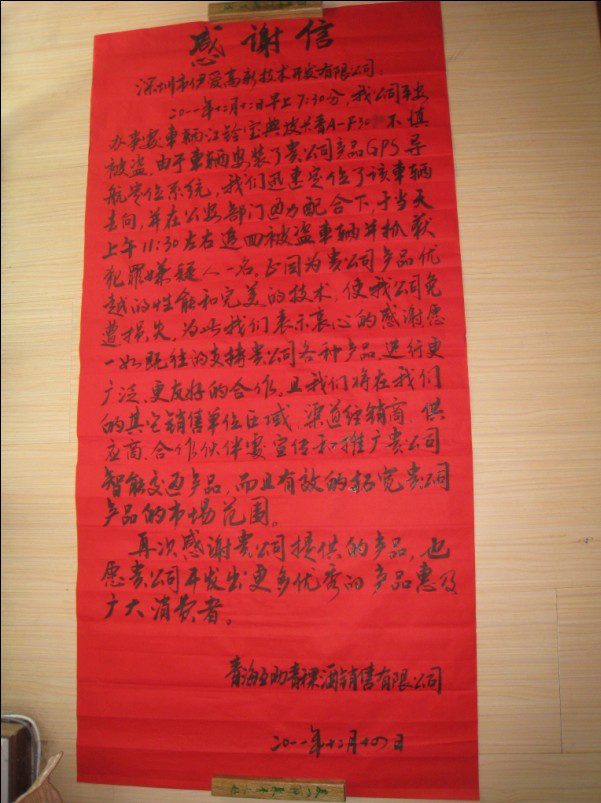 感谢信
深圳市伊爱高新技术开发有限公司:
二〇一一年十二月十二日早上7:30分,我公司平安
办事处车辆江铃宝典皮卡青A-F30 不慎
被盗,由于车辆安装了贵公司产品GPS导
航定位系统,我们迅速定位了该车辆
去向,并在公安部门通力配合下,于当天
上午11:30左右追回被盗车辆并抓获
犯罪嫌疑人一名。正因为贵公司产品优
越的性能和完美的技术,使我公司免
遭损失,为此我们表示衷心的感谢愿
一如既往的支持贵公司各种产品,进行更
广泛、更友好的合作。且我们将在我们
的其它销售单位区域、渠道经销商、供
应商、合作伙伴处宣传和推广贵公司
智能交通产品,而且有效的拓宽贵公司
产品的市场范围。
再次感谢贵公司提供的产品,也
愿贵公司开发出更多优秀的产品惠及
广大消费者。
青海互助青稞酒销售有限公司
二〇一一年十二月十四日